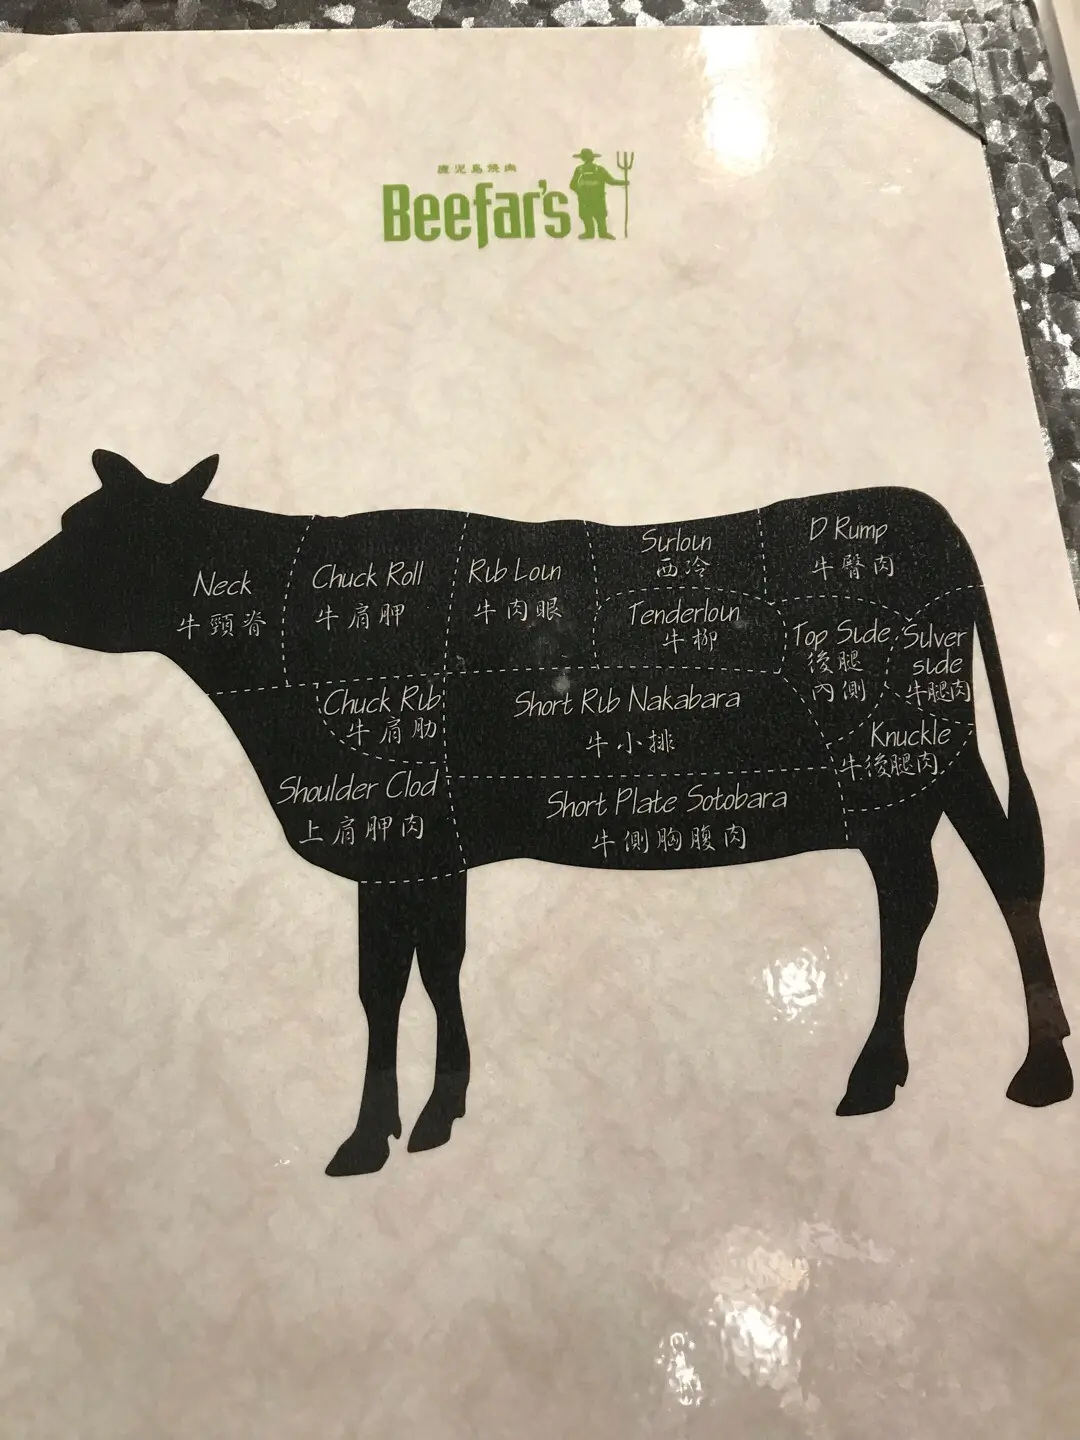 鹿児島焼肉
Beefar's
Neck
牛頸脊
Chuck Roll
牛肩胛
Rib Loin
牛肉眼
Sirloin
西冷
D Rump
牛臀肉
Tenderloin
牛柳
Top Side
後腿
內側
Silver
side
牛腿肉
Chuck Rib
牛肩肋
Short Rib Nakabara
牛小排
Knuckle
牛後腿肉
Shoulder Clod
上肩胛肉
Short Plate Sotobara
牛側胸腹肉